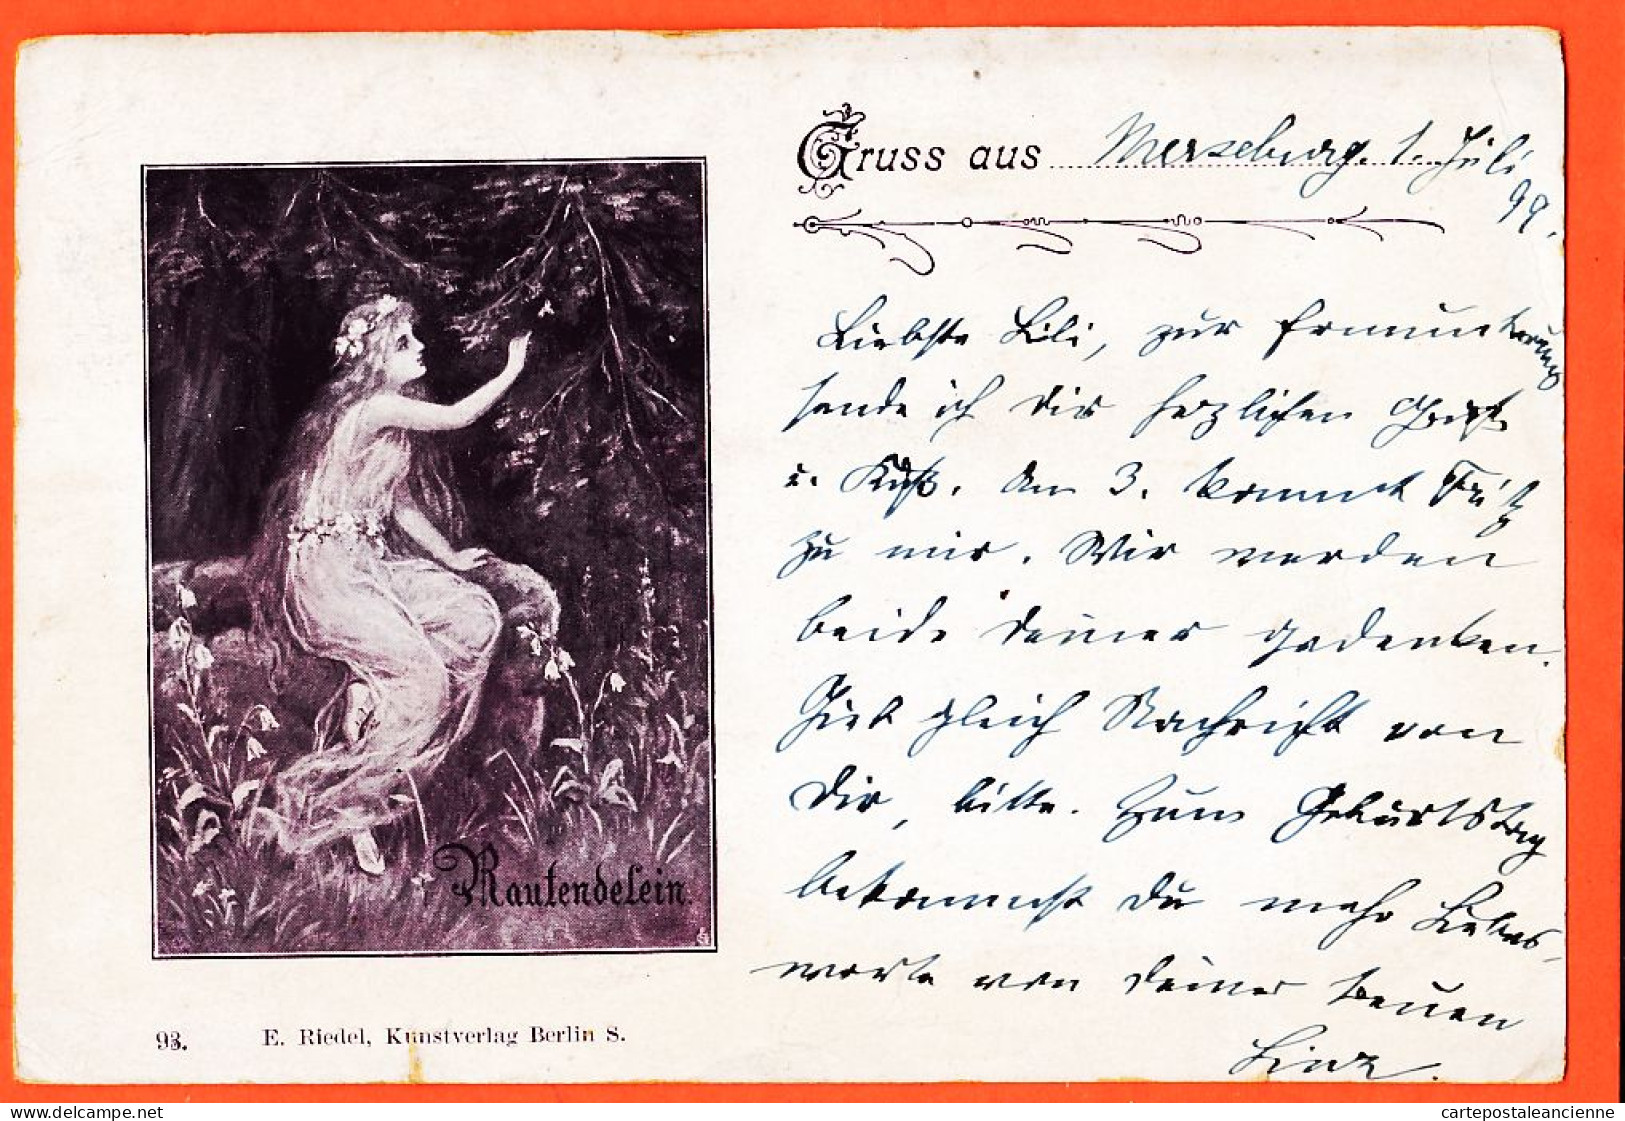 Gruss aus Merseburg. 1. Juli
99.
Liebste Lili, zur Ermunterung
sende ich Dir herzlichen Gruß
u. Kuß. Am 3. kommt Fritz
zu mir. Wir werden
beide Deiner gedenken.
Gieb gleich Nachricht von
Dir, bitte. Zum Geburtstag
bekommst Du mehr Liebes-
worte von Deiner treuen
Rautendelein.
93. E. Riedel, Kunstverlag Berlin S.
cartepostaleancienne